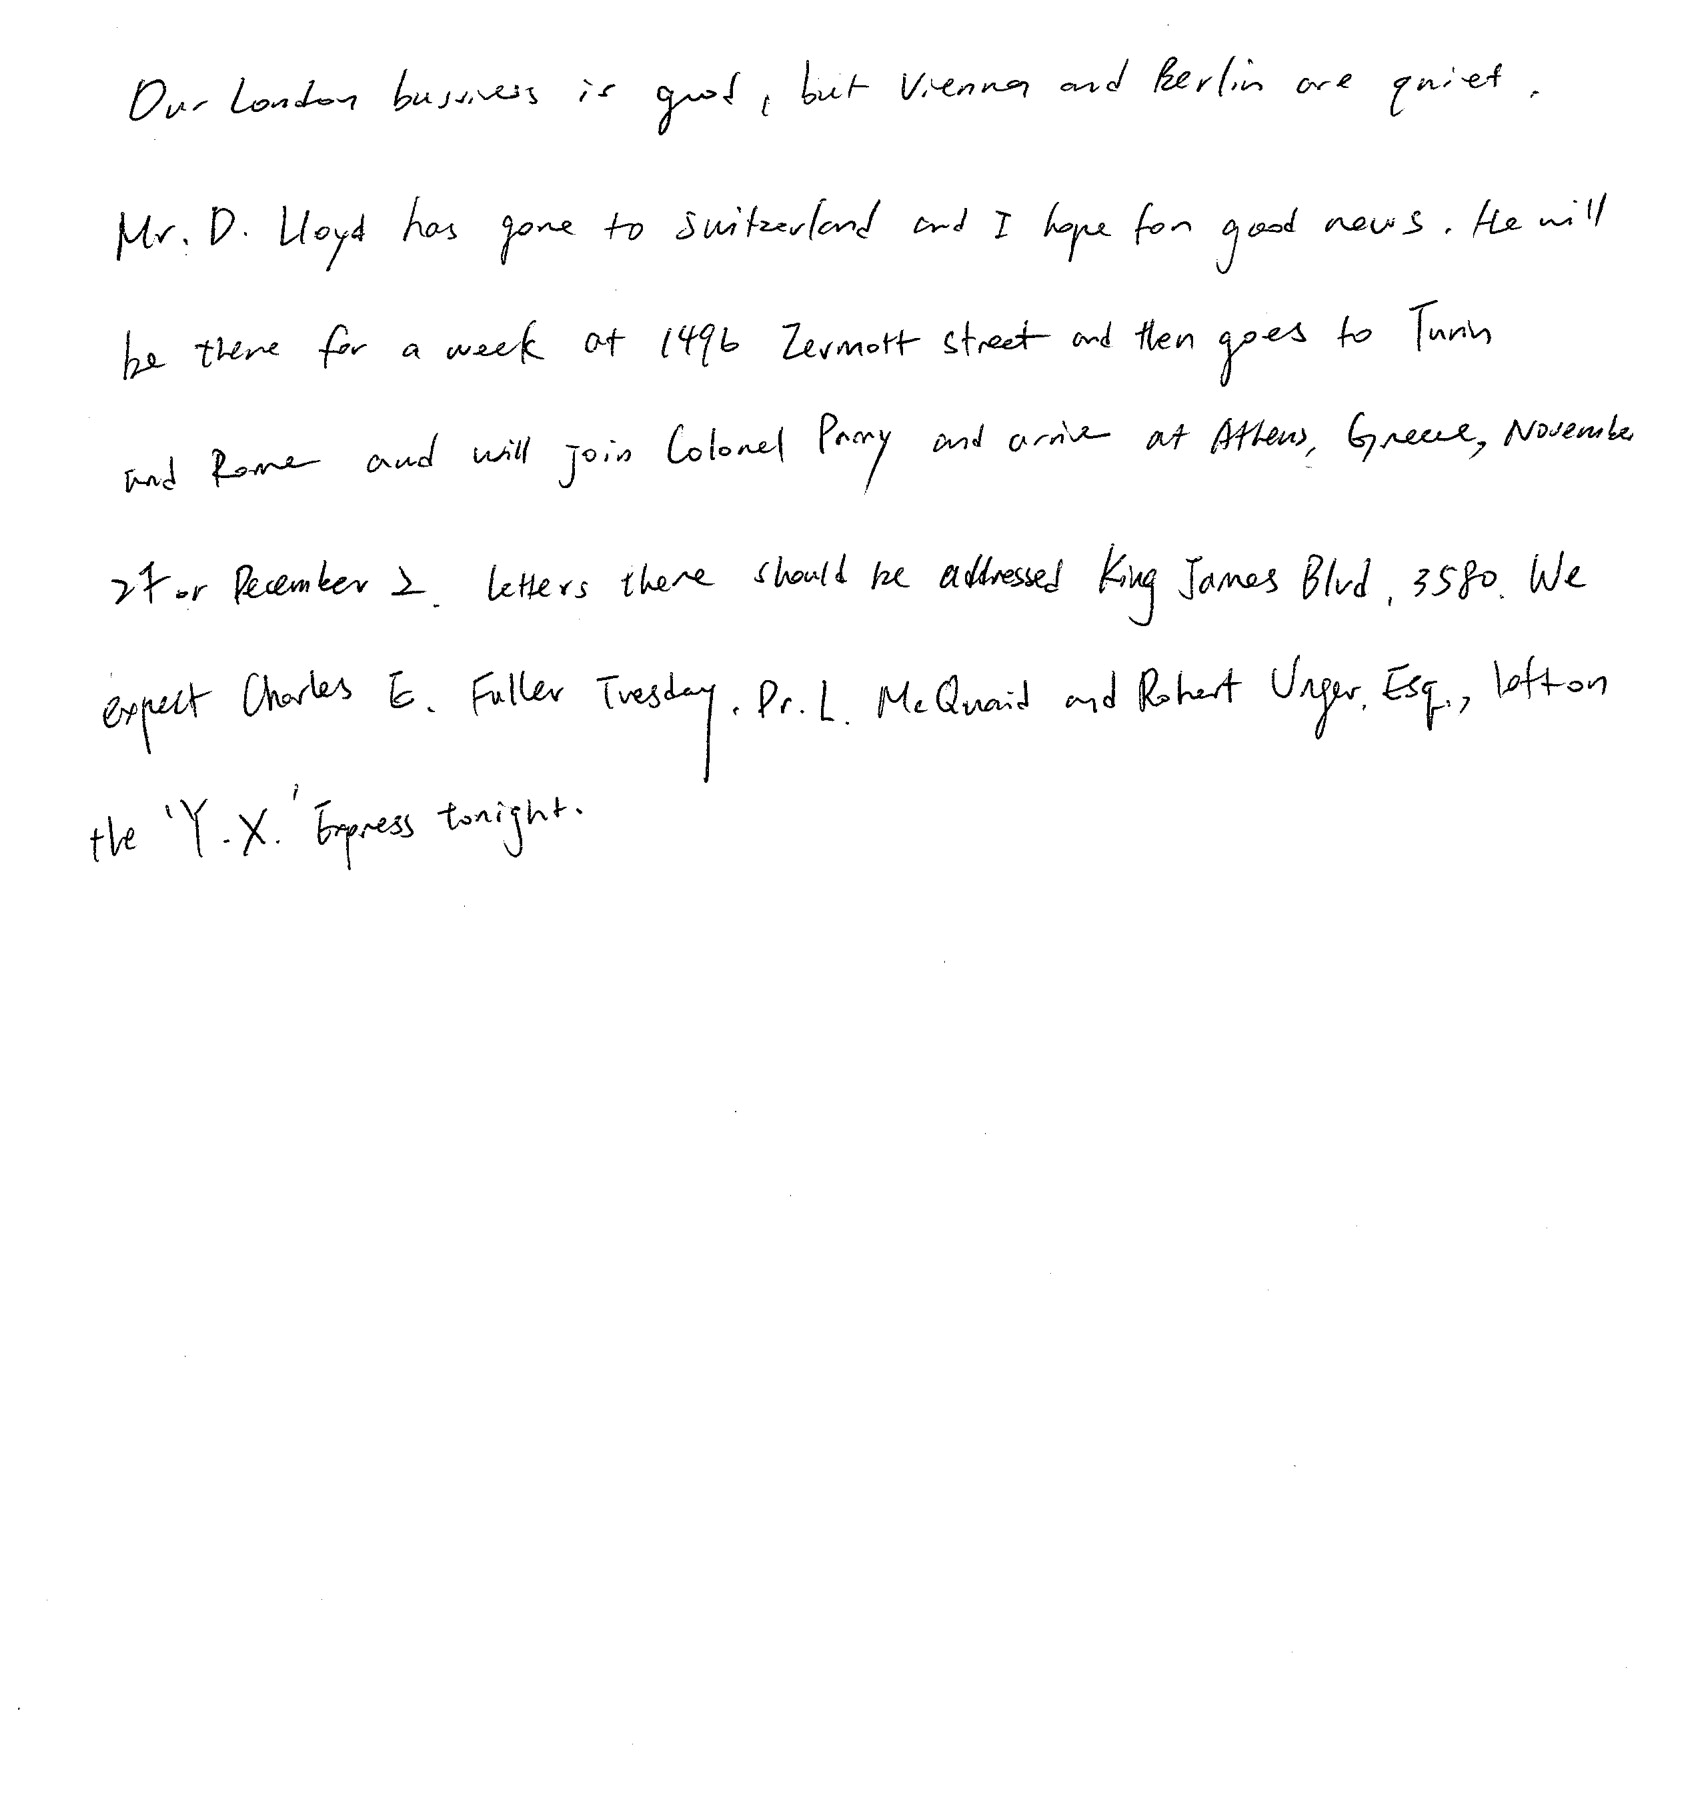 Our London bussiness is good, but Vienna and Berlin are quiet.
Mr. D. Lloyd has gone to Switzerland and I hope for good news. He will
be there for a week at 1496 Zermott street and then goes to Turin
and Rome and will join Colonel Parry and arrive at Athens, Greece, November
27 or December 2. letters there should be addressed King James Blvd, 3580. We
expect Charles E. Fuller Tuesday. Dr. L. McQuaid and Robert Unger, Esq., left on
the 'Y.X.' Express tonight.